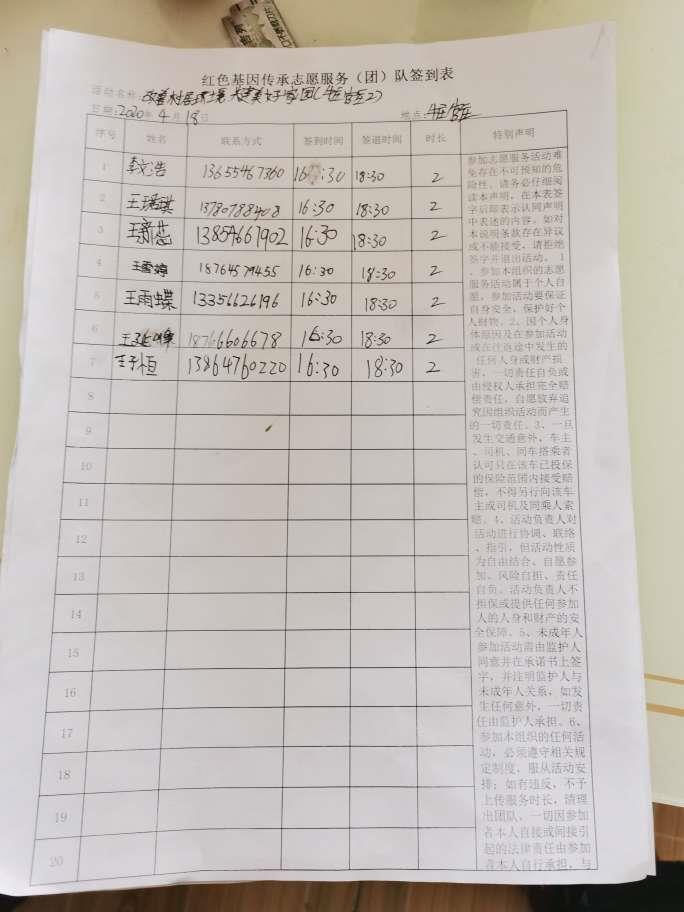 红色基因传承志愿服务（团）队签到表
活动名称：改善村居环境 共建美好家园
日期：2020年4月18日 地点：
序号 姓名 联系方式 签到时间 签退时间 时长 特别声明
1 李文浩 13655467360 16:30 18:30 2
2 王瑞琪 13780788408 16:30 18:30 2
3 王新蕊 13854667902 16:30 18:30 2
4 王雪婷 18764579455 16:30 18:30 2
5 王雨蝶 13356626196 16:30 18:30 2
6 18766606678 16:30 18:30 2
7 王子恒 13864760220 16:30 18:30 2
8
9
10
11
12
13
14
15
16
17
18
19
20
参加志愿服务活动难
免存在不可预知的危
险性。请务必仔细阅
读本声明，在本表签
字后即表示认同声明
中表述的内容。如对
本说明条款存在异议
或不能接受，请拒绝
签字并退出活动。 1
、参加本组织的志愿
服务活动属于个人自
愿，参加活动要保证
自身安全，保护好个
人财物。2、因个人身
体原因及在参加活动
或在往返途中发生的
任何人身或财产损
害，一切责任自负或
由侵权人承担完全赔
偿责任，自愿放弃追
究因组织活动而产生
的一切责任。3、一旦
发生交通意外，车主
、司机、同车搭乘者
认可只在该车已投保
的保险范围内接受赔
偿，不得另行向该车
主或司机及同乘人索
赔。4、活动负责人对
活动进行协调、联络
、指引，但活动性质
为自由结合、自愿参
加、风险自担、责任
自负。活动负责人不
担保或提供任何参加
人的人身和财产的安
全保障。5、未成年人
参加活动需由监护人
同意并在承诺书上签
字，并注明监护人与
未成年人关系，如发
生任何意外，一切责
任由监护人承担。6、
参加本组织的任何活
动，必须遵守相关规
定制度，服从活动安
排；如有违反，不予
上传服务时长，请理
出团队，一切因参加
者本人直接或间接引
起的法律责任由参加
者本人自行承担，与